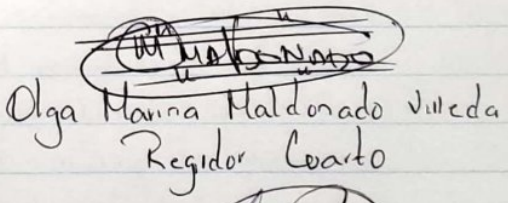 MALDONADO
Olga Marina Maldonado Villeda
Regidor Cuarto